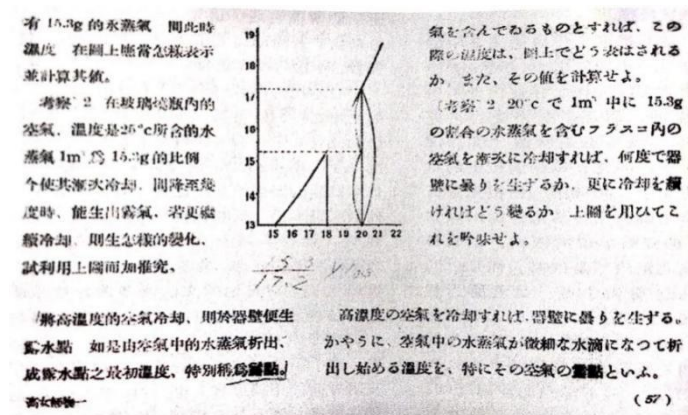 有 15.3g 的水蒸氣 問此時
濕度 在圖上應當怎樣表示
並計算其値。
考察 2 在玻璃燒瓶內的
空氣、溫度是25°c所含的水
蒸氣 1m³ 爲 15.3g的比例
今使其漸次冷却、問降至幾
度時、能生出霧氣、若更繼
續冷却、則生怎樣的變化、
試利用上圖而加推究、
19
18
17
16
15
14
13
15 16 17 18 19 20 21 22
氣を含んでゐるものとすれば、この
際の濕度は、圖上でどう表はされる
か、また、その値を計算せよ。
〔考察 2 20°c で 1m³ 中に 15.3g
の割合の水蒸氣を含むフラスコ內の
空氣を漸次に冷却すれば、何度で器
壁に曇りを生ずるか、更に冷却を續
ければどう變るか 上圖を用ひてこ
れを吟味せよ。
將高溫度的空氣冷却、則於器壁便生
露水點 如是由空氣中的水蒸氣析出、
成露水點之最初溫度、特別稱爲露點。
高溫度の空氣を冷却すれば、器壁に曇りを生ずる。
かやうに、空氣中の水蒸氣が微細な水滴になつて析
出し始める溫度を、特にその空氣の露點といふ。
(57)